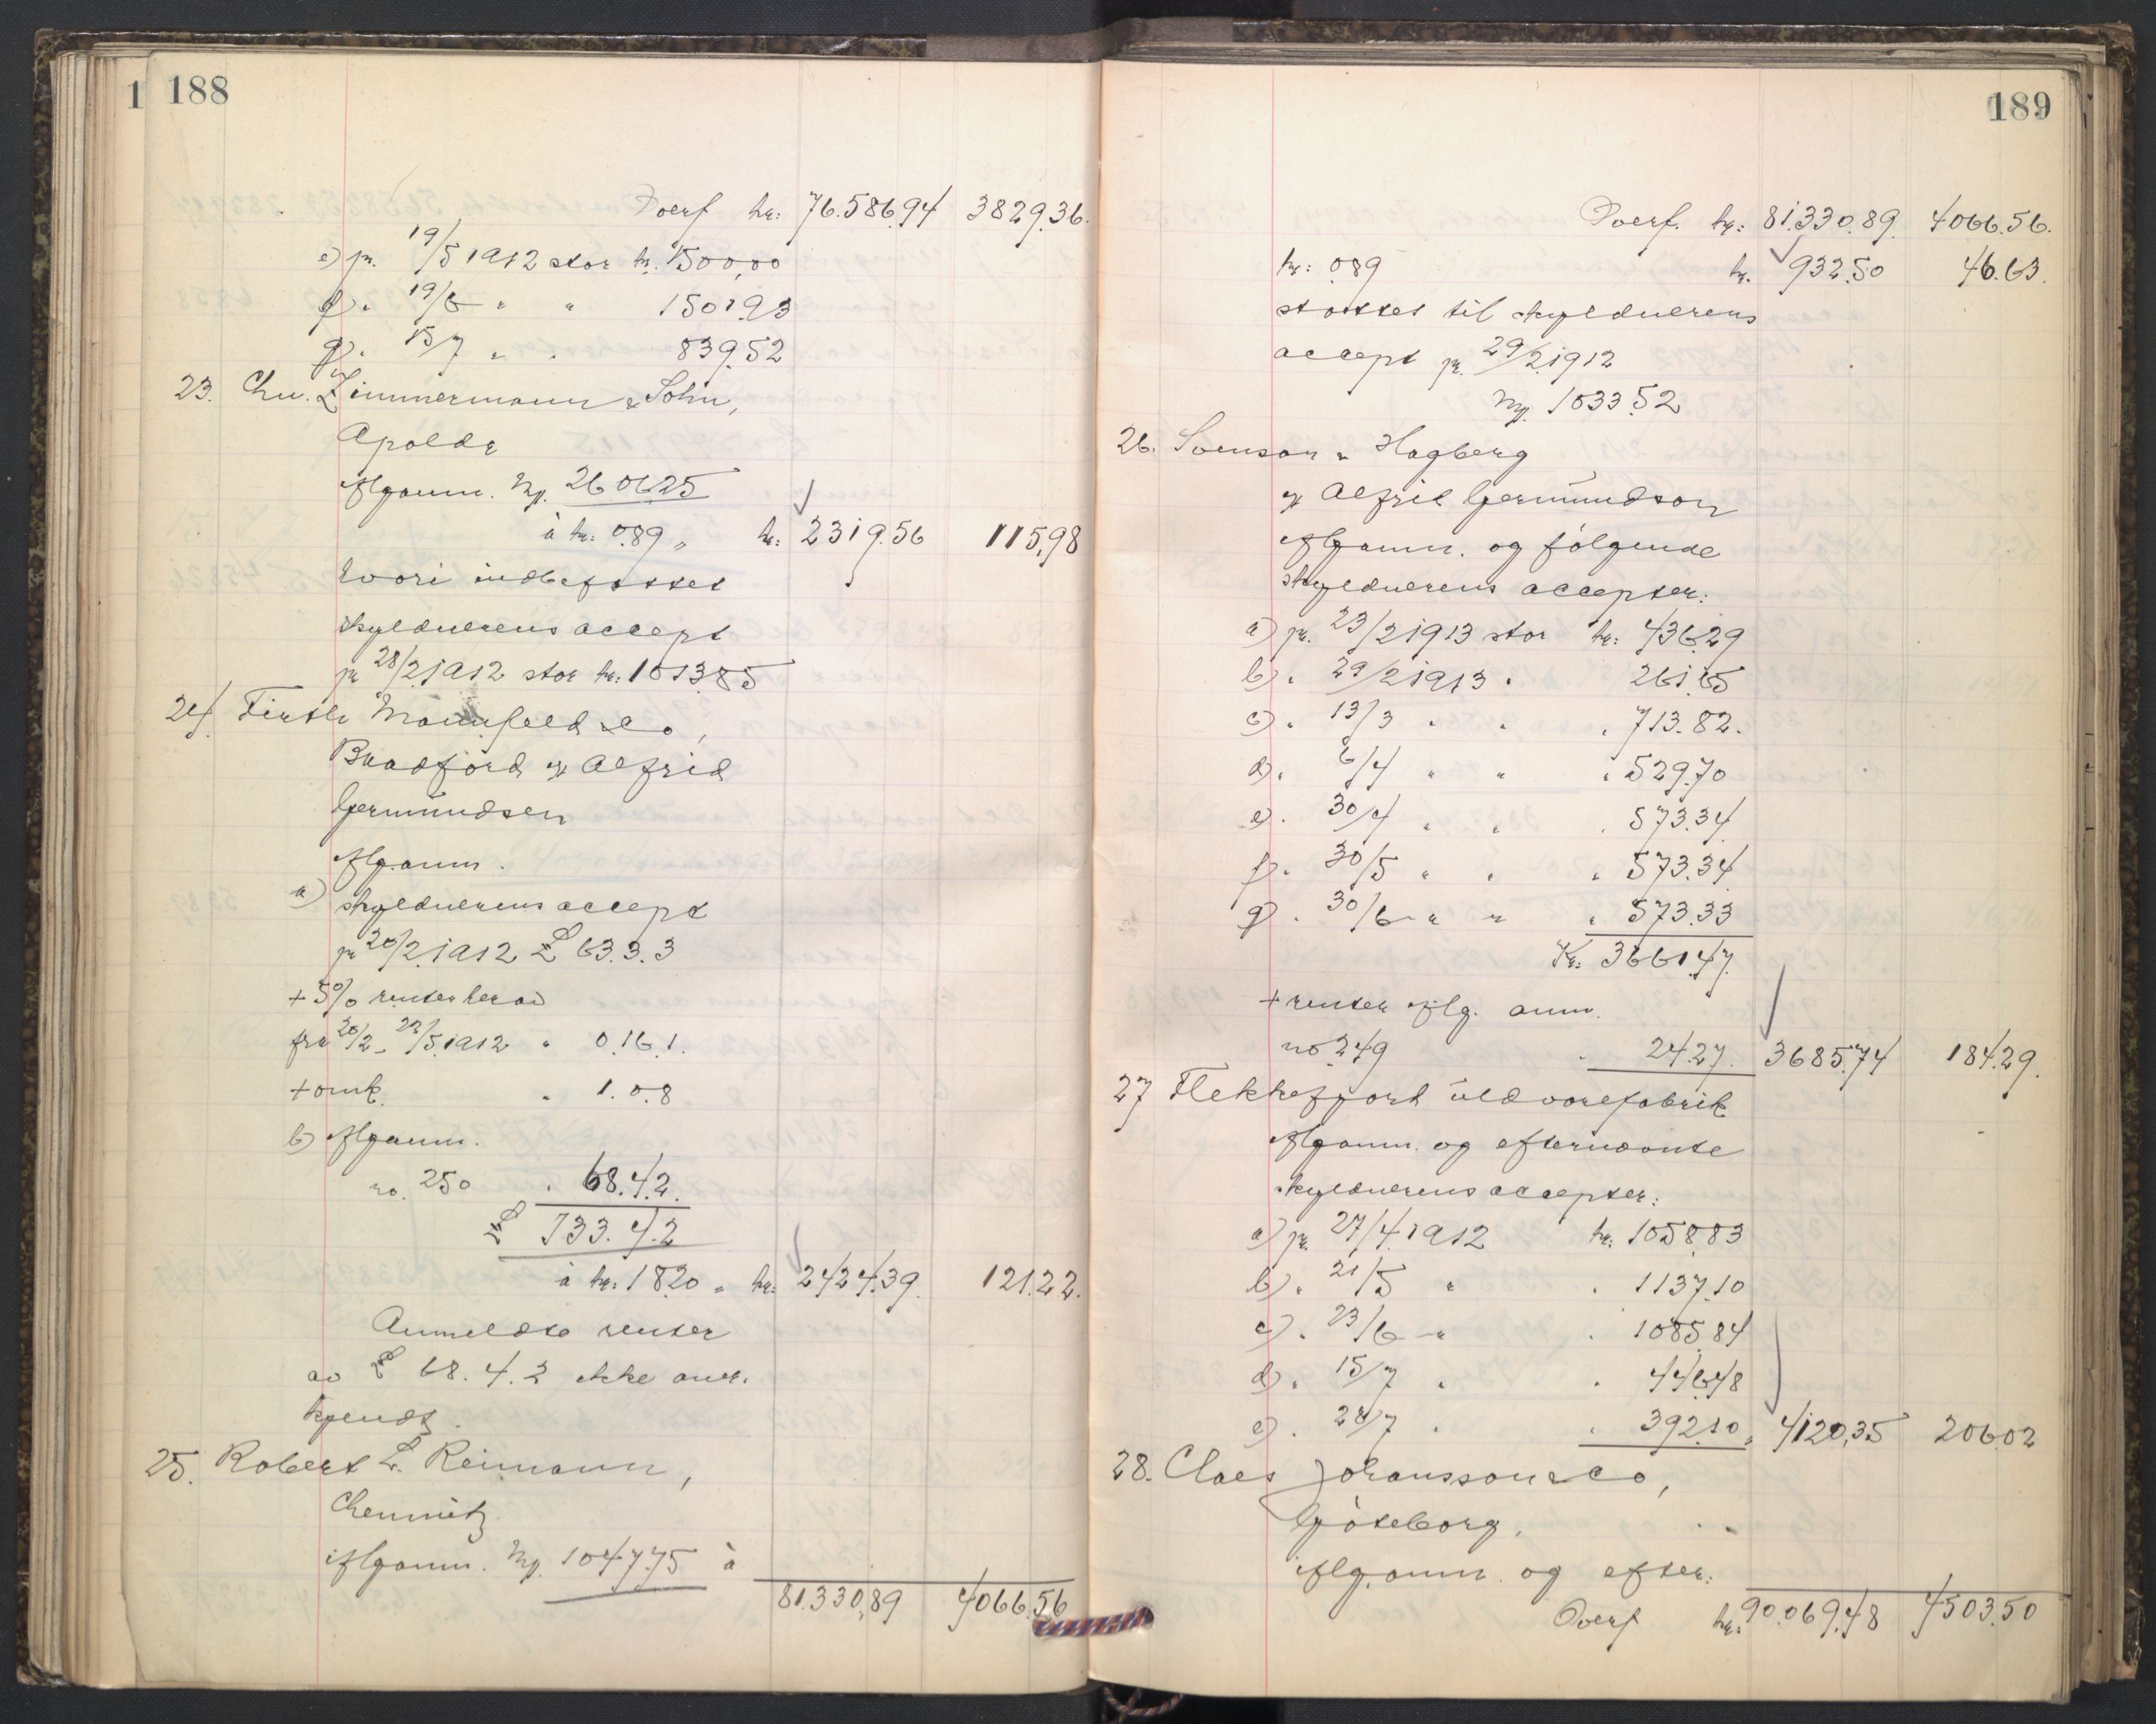 1 188
Overf kr: 76.586.94 3829.36.
e) pr. 19/5 1912 stor kr. 1500,00
f) " 19/6 " " 1501.93
g) " 15/7 " " 839.52
23. Chr. Zimmermann & Sohn,
Apolda
iflg anm. Mk. 2606.25
à kr: 0.89 " kr: 2319.56 115,98
hvori indbefattet
skyldnerens accept
pr 28/2 1912 stor kr: 1013.85
24. Firth Mannfield & Co,
Bradford v/ Alfrid
Germundsen
iflg anm.
a) skyldnerens accept
pr 20/2 1912 £ 63.3.3
+ 5% renter herav
fra 20/2 - 22/5 1912 " 0.16.1.
+ omk. " 1.0.8
b) iflg anm.
no. 250 " 68.4.2.
£ 133.4.2
à kr: 18.20 " kr: 2424.39. 121.22.
Anmeldte renter
av £ 68.4.2 ikke aner-
kjendt.
25. Robert L. Reimann,
Chemnitz.
iflg anm. Mk. 1047.75 à
81.330,89 4066.56
189
Overf. kr: 81.330.89. 4066.56.
kr: 0.89 kr. 932.50 46.63.
støttet til skyldnerens
accept pr. 29/2 1912
Mk. 1033.52
26. Svenson & Hagberg
v/ Alfrid Germundson
iflg anm. og følgende
skyldnerens accepter:
a) pr. 23/2 1913 stor kr: 436.29
b) " 29/2 1913 " 261.65
c) " 13/3 " " " 713.82.
d) " 6/4 " " " 529.70
e) " 30/4 " " " 573.34
f) " 30/5 " " " 573.34
g) " 30/6 " " " 573.33
Kr: 3661.47.
+ renter iflg. anm.
no 249 " 24.27. 3685.74 184.29.
27 Flekkefjord uldvarefabrik
iflg anm. og efternævnte
skyldnerens accepter:
a) pr. 27/4 1912 kr: 1058.83
b) " 21/5 " " 1137.10
c) " 23/6 " " 1085.84
d) " 15/7 " " 446.48
e) " 28/7 " " 392.10 " 4120,35 206.02
28. Claes Johansson & Co,
Göteborg,
iflg. anm. og efter-
Overf kr: 90.069.48 4503.50